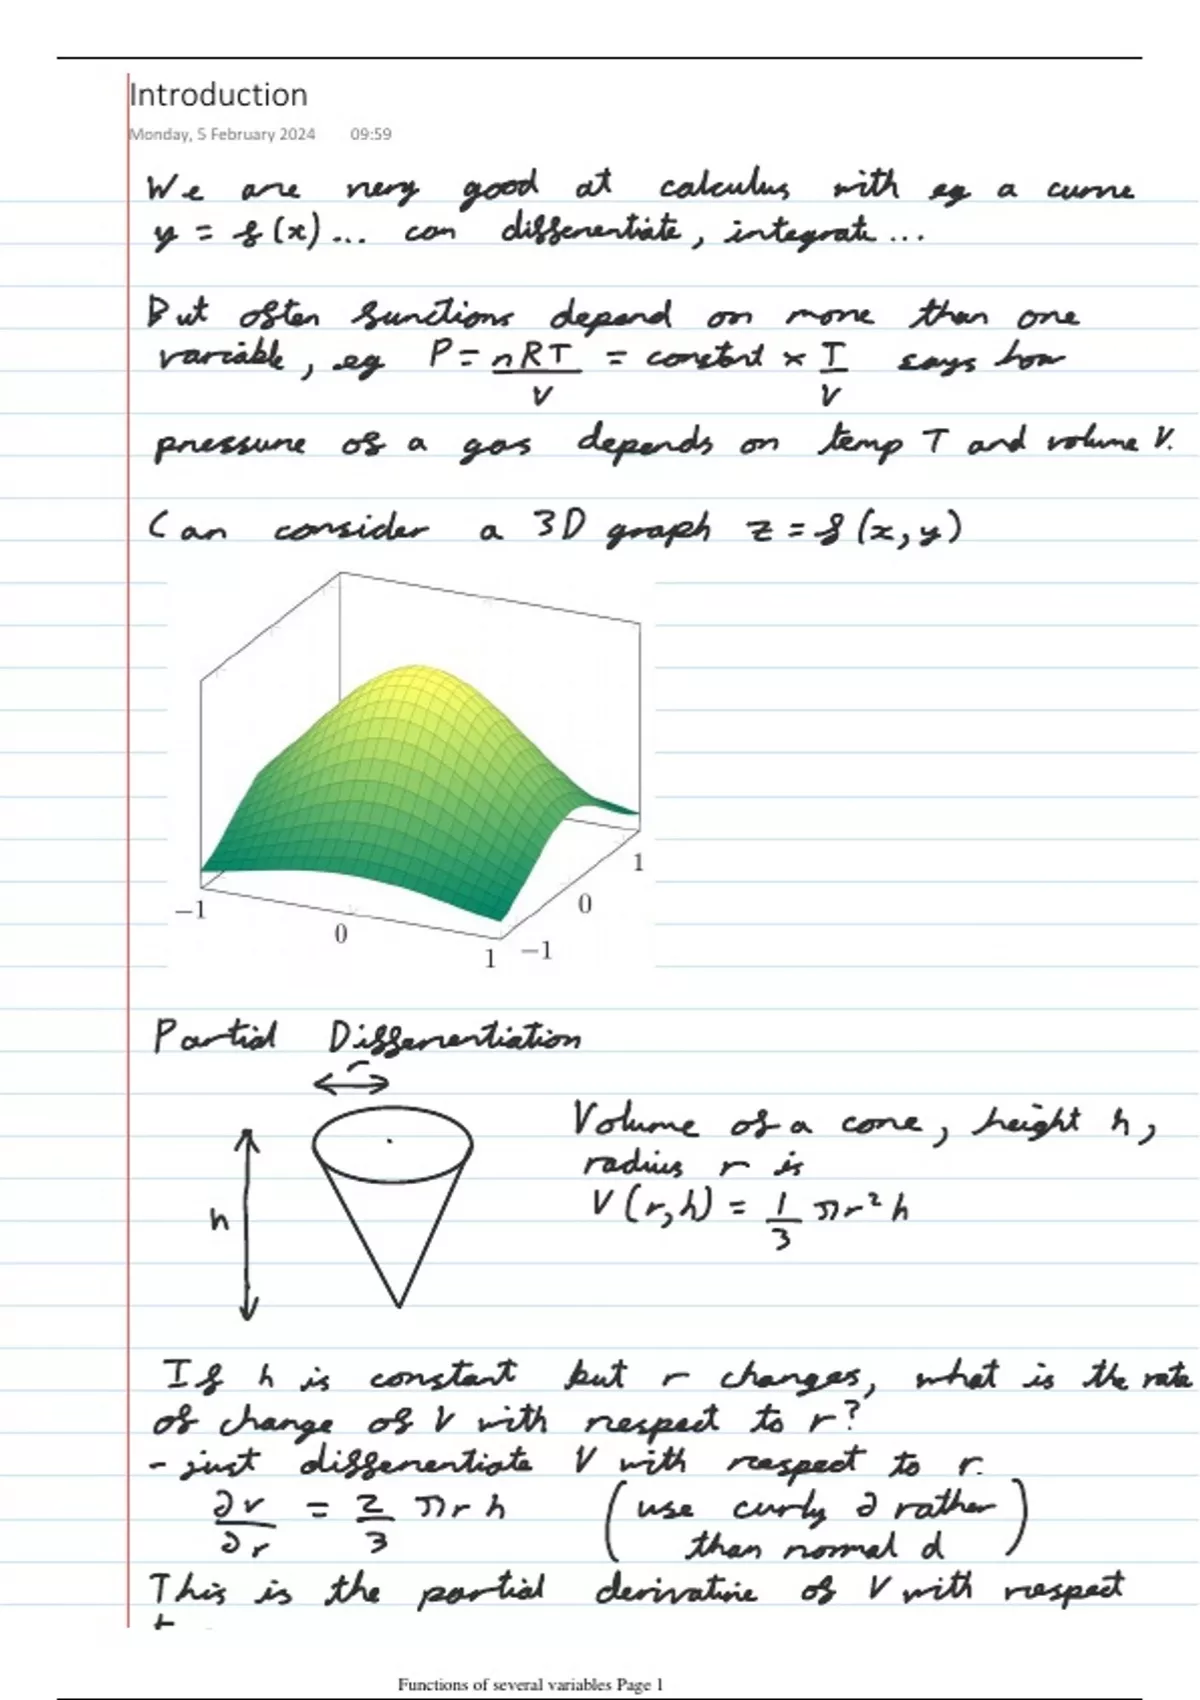 Introduction
Monday, 5 February 2024 09:59
We are very good at calculus with eg a curve
y = f(x)... can differentiate, integrate...
But often functions depend on more than one
variable, eg P = nRT/V = constant × T/V says how
pressure of a gas depends on temp T and volume V.
Can consider a 3D graph z = f(x,y)
-1
0
1
-1
0
1
Partial Differentiation
r
h
Volume of a cone, height h,
radius r is
V(r,h) = 1/3 πr²h
If h is constant but r changes, what is the rate
of change of V with respect to r?
- just differentiate V with respect to r.
∂V/∂r = 2/3 πrh (use curly ∂ rather
than normal d)
This is the partial derivative of V with respect
Functions of several variables Page 1